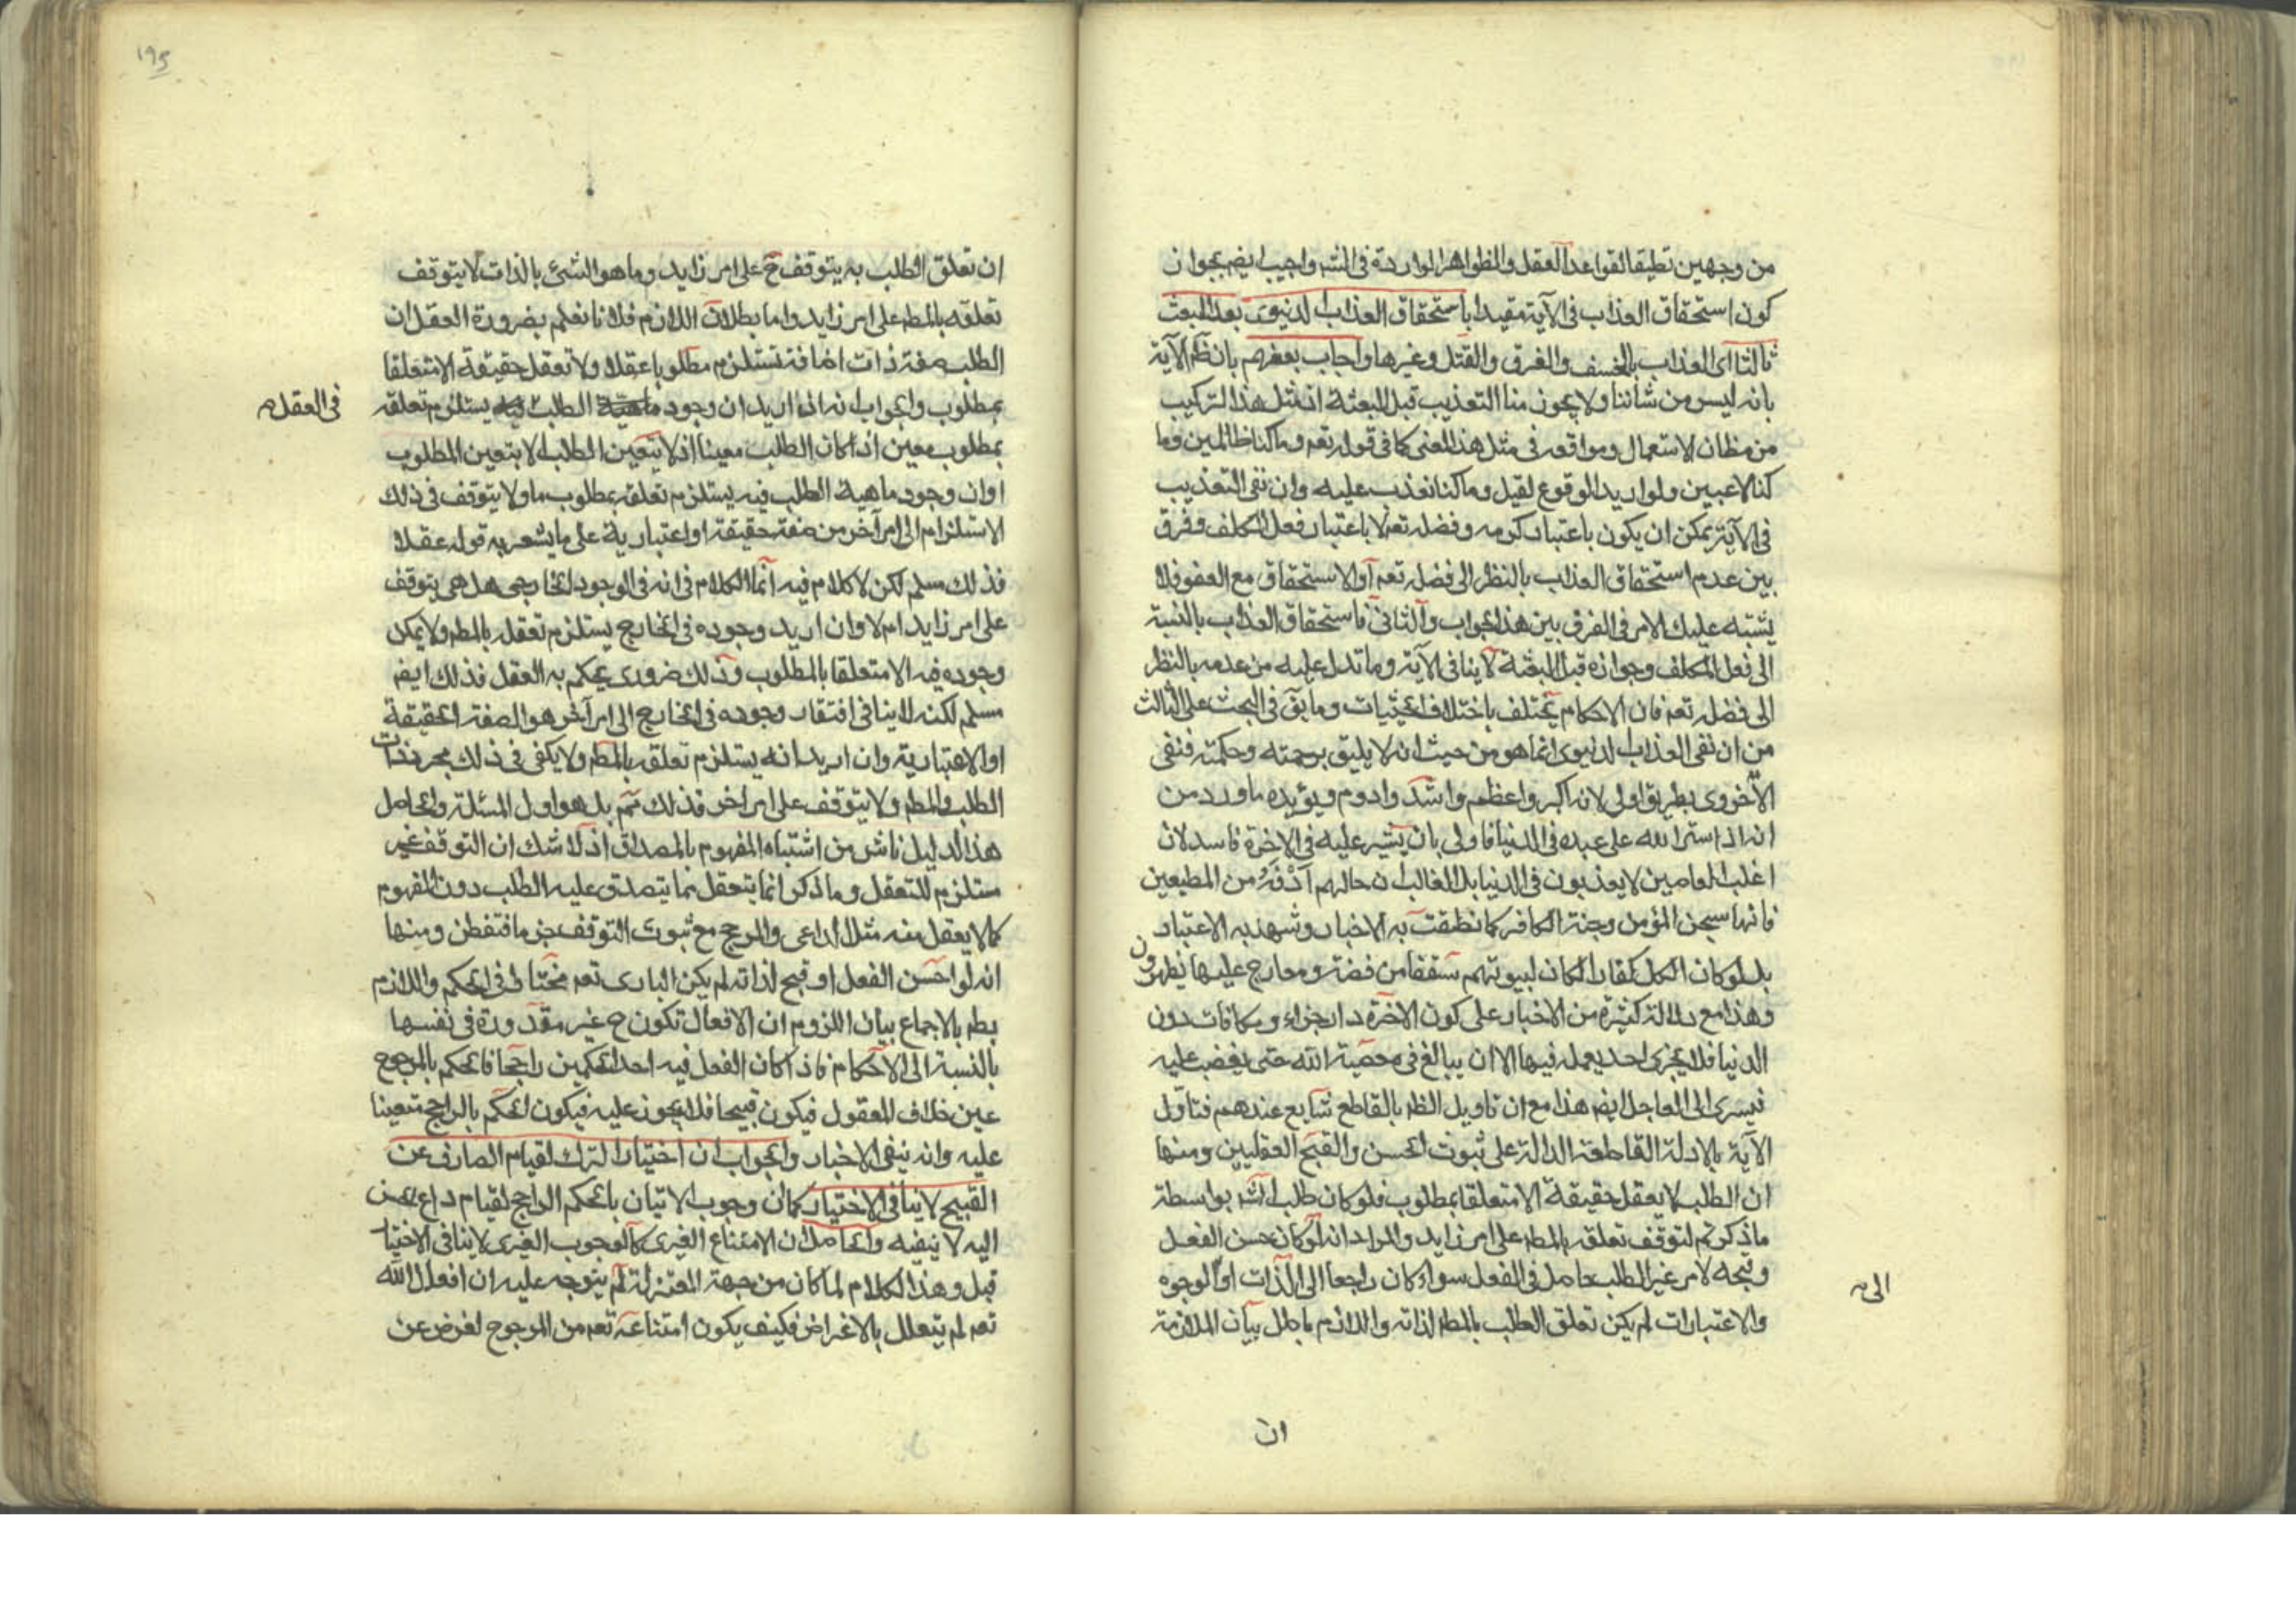 من وجهين تطبيقا لقواعد العقل والظواهر الواردة في الشر واجيب ايضا بجواز ان
كون استحقاق العذاب في الآية مقيدا باستحقاق العذاب الدنيوى بعد البعث
ثالثا اى العذاب بالخسف والغرق والقتل وغيرها واجاب بعضهم بان نظم الآية
بانه ليس من شاننا ولا يجوز منا التعذيب قبل البعثة اذ مثل هذا التركيب
من مظان الاستعمال ومواقعه في مثل هذا المعنى كما في قوله تعم وما كنا ظالمين وما
كنا لاعبين ولو اريد الوقوع لقيل وما كنا نعذب عليه وان نفى التعذيب
في الآية يمكن ان يكون باعتبار كرمه وفضله تعم لا باعتبار فعل المكلف وفرق
بين عدم استحقاق العذاب بالنظر الى فضله تعم او الاستحقاق مع العفو فلا
يشتبه عليك الامر في الفرق بين هذا الجواب والثانى فاستحقاق العذاب بالنسبة
الى فعل المكلف وجوازه قبل البعثة لا ينافى الآية وما تدل عليه من عدمه بالنظر
الى فضله تعم فان الاحكام تختلف باختلاف الحيثيات وما بقى في البحث على الثالث
من ان نفى العذاب الدنيوى انما هو من حيث انه لا يليق برحمته وحكمته فنفى
الاخروى بطريق اولى لانه اكبر واعظم واشد وادوم ويؤيده ما ورد من
انه اذا ستر الله على عبده في الدنيا فاولى بان يستر عليه في الاخرة فاسد لان
اغلب العاصين لا يعذبون في الدنيا بل الغالب ان حالهم ارفه من المطيعين
فانها سجن المؤمن وجنة الكافر كما نطقت به الاخبار وشهد به الاعتبار
بل لو كان الكل كفارا لكان لبيوتهم سقفا من فضة ومعارج عليها يظهرون
وهذا مع دلالة كثيرة من الاخبار على كون الاخرة دار جزاء ومكافات دون
الدنيا فلا يجزى احد بعمله فيها الا ان يبالغ في معصية الله حتى يغضب عليه
فيسرى الى العاجل ايضا هذا مع ان تاويل الظ بالقاطع شايع عندهم فتاول
الآية بالادلة القاطعة الدالة على ثبوت الحسن والقبح العقليين ومنها
ان الطلب لا يعقل حقيقة الا متعلقا بمطلوب فلو كان طلب الش بواسطة
ما ذكرتم لتوقف تعلقه بالمط على امر زايد والمراد انه لو كان حسن الفعل
وقبحه لامر غير الطلب حاصل في الفعل سواء كان راجعا الى الذات او الوجوه
والاعتبارات لم يكن تعلق الطلب بالمط لذاته واللازم باطل بيان الملازمة
الى
ان
١٩٥
ان تعلق الطلب به يتوقف ح على امر زايد وما هو الشئ بالذات لا يتوقف
تعلقه بالمط على امر زايد واما بطلان اللازم فلانا نعلم بضرورة العقل ان
الطلب صفة ذات اضافة تستلزم مطلوبا عقلا ولا تعقل حقيقة الا متعلقا
بمطلوب والجواب انه اذا اريد ان وجود ماهية الطلب فيه يستلزم تعلقه
في العقل
بمطلوب معين اذا كان الطلب معينا اذ لا يتعين الطلب الا بتعين المطلوب
او ان وجود ماهية الطلب فيه يستلزم تعلقه بمطلوب ما ولا يتوقف في ذلك
الاستلزام الى امر آخر من صفة حقيقة او اعتبارية على ما يشعر به قوله عقلا
فذلك مسلم لكن لا كلام فيه انما الكلام في انه في الوجود الخارجى هل هي يتوقف
على امر زايد ام لا وان اريد وجوده في الخارج يستلزم تعقله بالمط ولا يمكن
وجوده فيه الا متعلقا بالمطلوب وذلك ضرورى يحكم به العقل فذلك ايضا
مسلم لكنه لا ينافى افتقار وجوده في الخارج الى امر آخر هو الصفة الحقيقة
او الاعتبارية وان اريد انه يستلزم تعلقه بالمط ولا يكفى في ذلك مجرد ذات
الطلب والمط ولا يتوقف على امر اخر فذلك مم بل هو اول المسئلة والحاصل
هذا الدليل ناش من اشتباه المفهوم بالمصداق اذ لا شك ان التوقف غير
مستلزم للتعقل وما ذكر انما يتعقل بما يتصدق عليه الطلب دون المفهوم
كما لا يعقل منه مثلا الداعى والمرجح مع ثبوت التوقف جزما فتفطن ومنها
انه لو احسن الفعل او قبح لذاته لم يكن البارى تعم مختارا في الحكم واللازم
بط بالاجماع بيان اللزوم ان الافعال تكون ح غير مقدورة في نفسها
بالنسبة الى الاحكام فاذا كان الفعل فيه احد الحكمين راجحا فالحكم بالمرجوح
عين خلاف المعقول فيكون قبيحا فلا يجوز عليه فيكون الحكم بالراجح متعينا
عليه وانه ينفى الاختيار والجواب ان اختيار الترك لقيام الصارف عن
القبيح لا ينافى الاختيار كما ان وجوب الاتيان بالحكم الراجح لقيام داع
اليه لا ينفيه والحاصل ان الامتناع الغيرى كالوجوب الغيرى لا ينافى الاختيار
قيل وهذا الكلام لما كان من جهة المعتزلة لم يتوجه عليه ان افعال الله
تعم لم يتعلل بالاغراض فكيف يكون امتناعه تعم من المرجوح لغرض عن